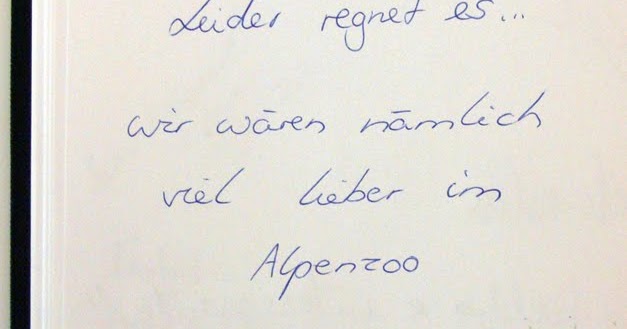 Leider regnet es...
wir wären nämlich
viel lieber im
Alpenzoo